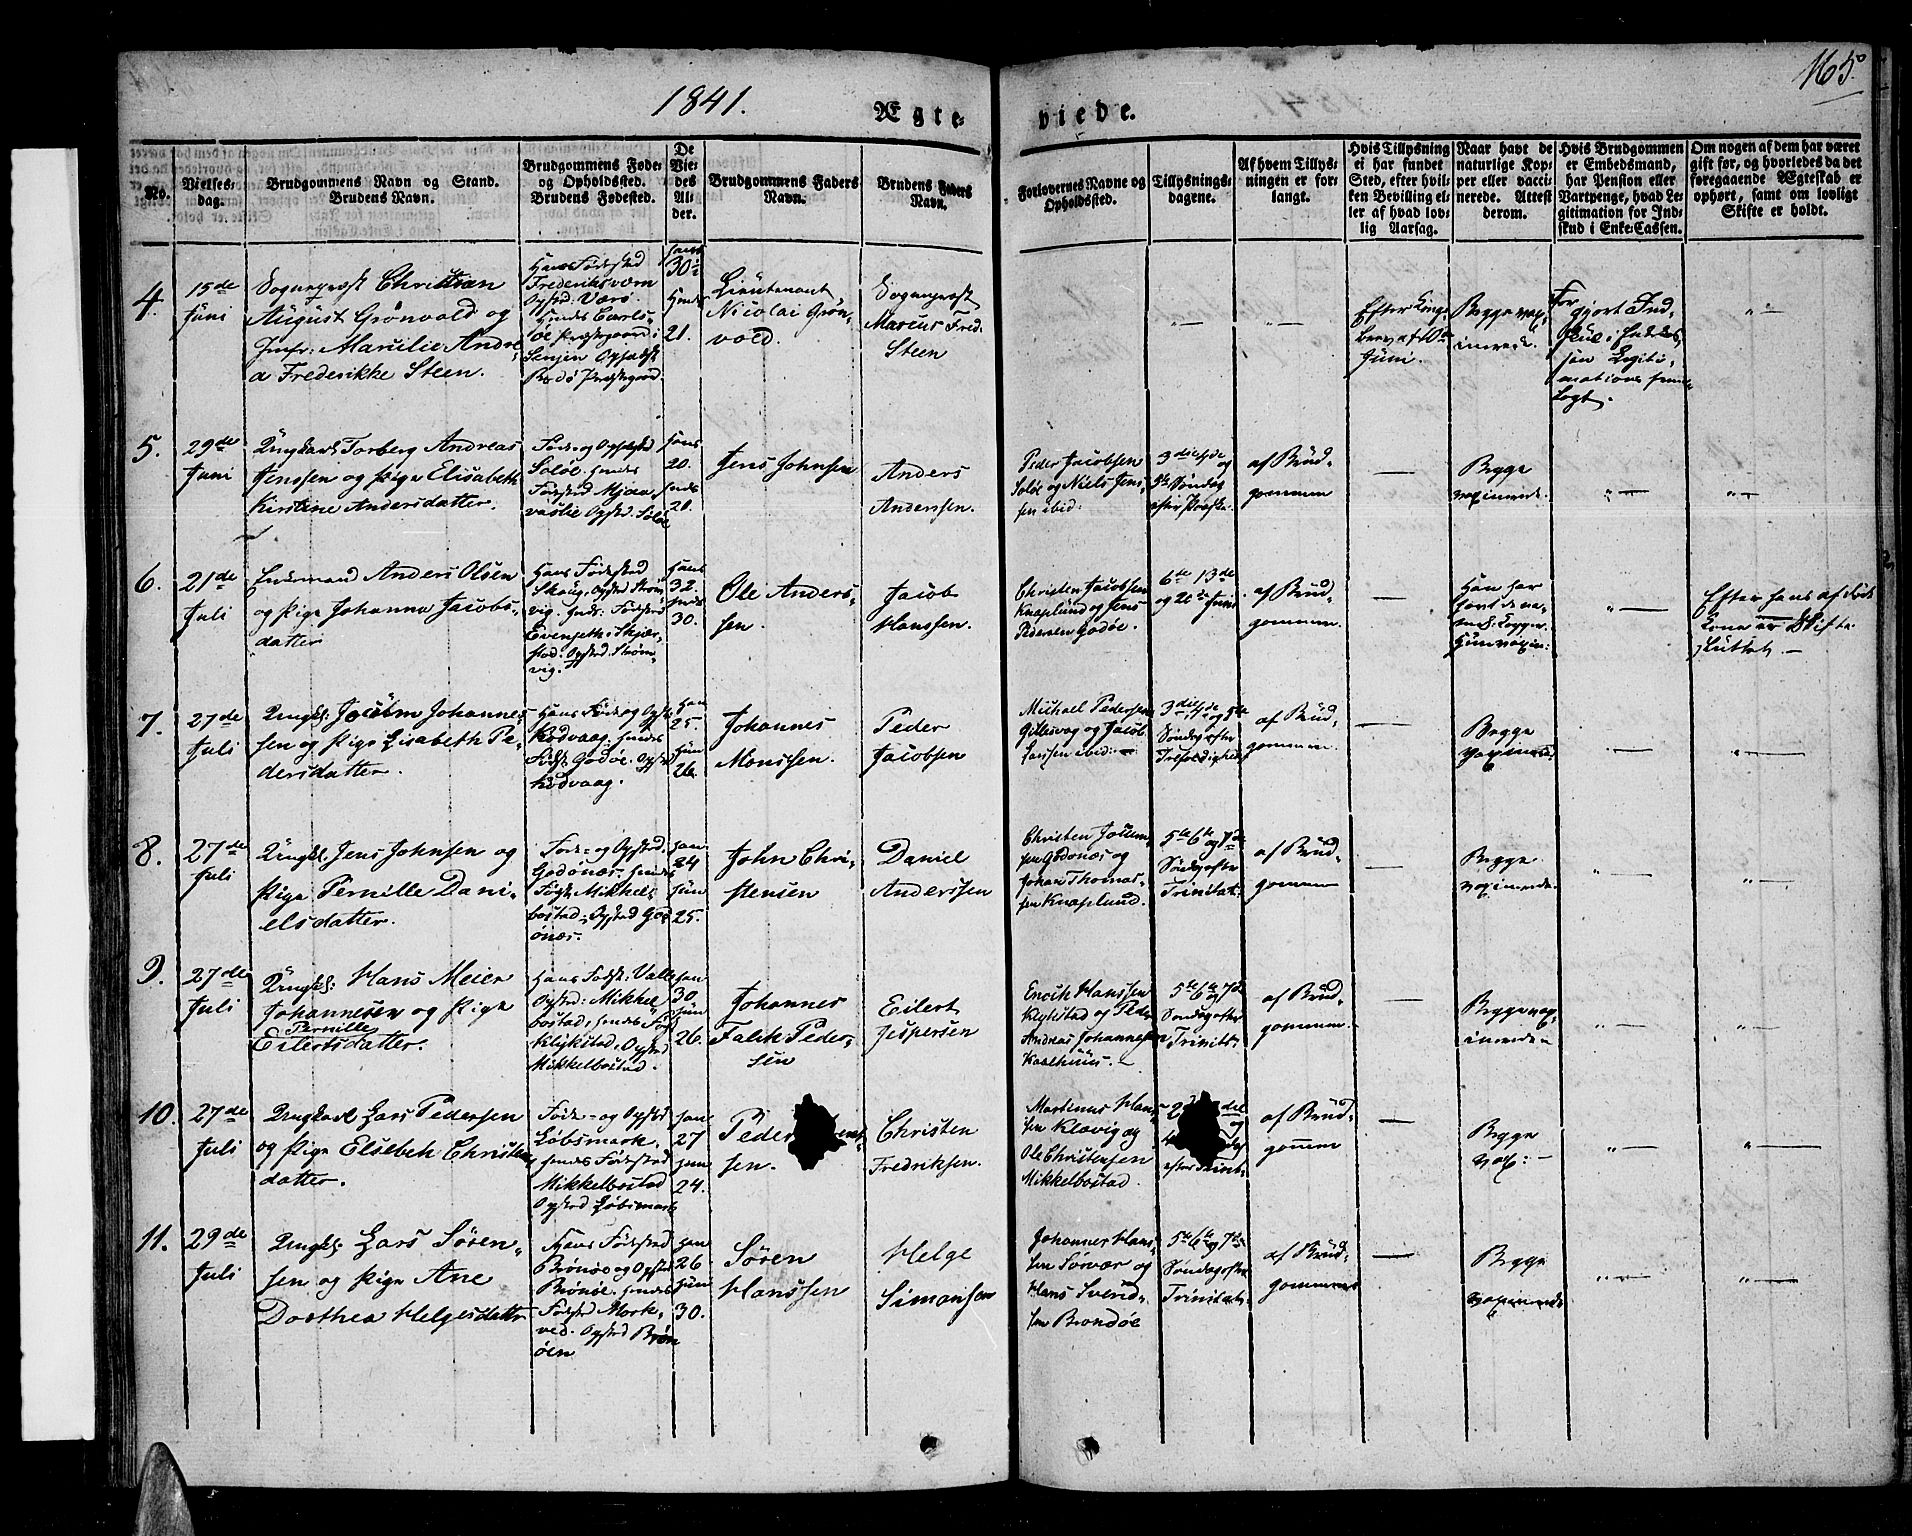 165.
1841.
Ægte-
viede.
No.
Vielses-
dag.
Brudgommens Navn og Stand.
Brudens Navn.
Brudgommens Føde-
og Opholdssted.
Brudens Fødested.
De
Vie-
des
Al-
der.
Brudgommens Faders
Navn.
Brudens Faders
Navn.
Forlovernes Navne og
Opholdssted.
Tillysnings-
dagene.
Af hvem Tillys-
ningen er for-
langt.
Hvis Tillysning
ei har fundet
Sted, efter hvil-
ken Bevilling el-
ler af hvad lov-
lig Aarsag.
Naar havt de
naturlige Kop-
per eller vacci-
nerede. Attest
derom.
Hvis Brudgommen
er Embedsmand,
har Pension eller
Vartpenge, hvad Le-
gitimation for Ind-
skud i Enke-Cassen.
Om nogen af dem har været
gift før, og hvorledes da det
foregaaende Ægteskab er
ophørt, samt om lovligt
Skifte er holdt.
4.
15de
Juni
Sogneprest Christian
August Grønvold og
Jmfr: Marulie Andre
a Frederikke Steen.
Hans Fødested
Frederiksværn
Opsted: Værø.
Hendes Carls-
øe Præstegaard i
Senjen Opholdst
Bodø Præstegaard.
Hans
30½
Hendes
21.
Lieutenant
Nicolai Grøn-
vold.
Sogneprest
Marcus Fred.
Steen
Efter Konge-
brev af 10de
Juni.
Begge vax-
inerede.
5.
29de
Juni
Ungkarl Torberg Andreas
Jenssen og Pige Elisabeth
Kirstine Andersdatter.
Føde og Opholdsted
Soløe. Hendes
Fødested Mjaa-
vaslie Opsted. Soløe
Hans
20.
Hendes
20.
Jens Johnsen
Anders
Anderssen.
Peder Jacobsen
Soløe og Niels Jens-
sen ibid:
3die 4de og
5te Søndag
efter Paaske.
af Brud-
gommen
Begge
vaxinerede.
6.
21de
Juli
Enkemand Anders Olsen
og Pige Johanna Jacobs-
datter
Hans Fødested
Skaug. Opsted Strøm-
vig. Hendes Fødested
Evenseth i Skjer-
stad. Opsted. Strøm-
vig.
Hans
32.
Hendes
30.
Ole Anders-
sen.
Jacob
Hanssen.
Christen Jacobsen
Knaplund og Jens
Pedersen Godøe.
6te 13de
og 20de Juni
af Brud-
gommen.
Han har
havt de na-
turl. Kopper.
Hun vaxin:
Efter hans afdøde
Kone er Skifte
sluttet. —
7.
27de
Juli
Ungkl: Joakim Johannes-
sen og Pige Lisabeth Pe-
dersdatter.
Hans Føde og Opst
Kodvaag. Hendes
Fødst. Godøe. Opst
Kodvaag.
Han
25.
Hun
26.
Johannes
Monssen.
Peder
Jacobsen
Michael Pedersen
Gillesvog og Jacob
Larssen ibid:
3die 4de og 5te
Søndag efter
Trefoldighed
af Brud-
gommen.
Begge
vaxinerede:
8.
27de
Juli
Ungkl. Jens Johnsen og
Pige Pernille Dani-
elsdatter.
Føde- og Opsted.
Godønæs. Hendes
Fødst Mikkel-
bostad. Opsted God-
ønæs.
Han
24
Hun
25.
John Chri-
stensen
Daniel
Anderssen
Christen Joakim-
sen Godonæs og
Johan Thomas-
sen Knaplund.
5te 6te og 7de
Søndag efter
Trinitat:
af Brud-
gommen
Begge
vaxinerede.
9.
27de
Juli
Ungkl: Hans Meier
Johannesen og Pige
Pernille
Eilertsdatter.
Hans Fødst: Valle
Opsted: Mikkel-
bostad, Hendes Fødst
Klykstad, Opsted
Mikkelbostad.
Han
30.
Hun
26.
Johannes
Falch Peder-
sen
Eilert
Jespersen
Encik Hanssen
Klykstad og Peder
Andreas Johannesen
Kaalhuus. —
5te 6te og 7de
Søndag efter
Trinitat.
af Brud-
gommen.
Begge vax-
inerede
10.
27de
Juli
Ungkarl Lars Pedersen
og Pige Elsebeh Christens
datter.
Føde- og Opsted
Løbsmark.
Hendes Fødested
Mikkelbostad
Opsted Løbsmark
Han
27
Hun
24.
Peder
sen.
Christen
Fredriksen.
Martinus Han-
sen Klavig og
Ole Christensen
Mikkelbostad.
efter Trinit.
af Brud-
gomme
Begge
vax: —
11.
29de
Juli
Ungkl: Lars Søren-
sen og Pige Ane
Dorthea Helgesdatter
Hans Fødested
Brønøe og Opst
Brønøe. Hendes
Fødested Mork-
ved. Opsted Brøn
øen
Han
26
Hun
30.
Søren
Hanssen
Helge
Simonsen
Johannes Han-
sen Sørvær og
Hans Svend-
sen Brondøe
5te 6te og 7de
Søndag efter
Trinitat:
af Brud-
gommen
Begge
vaxinerede